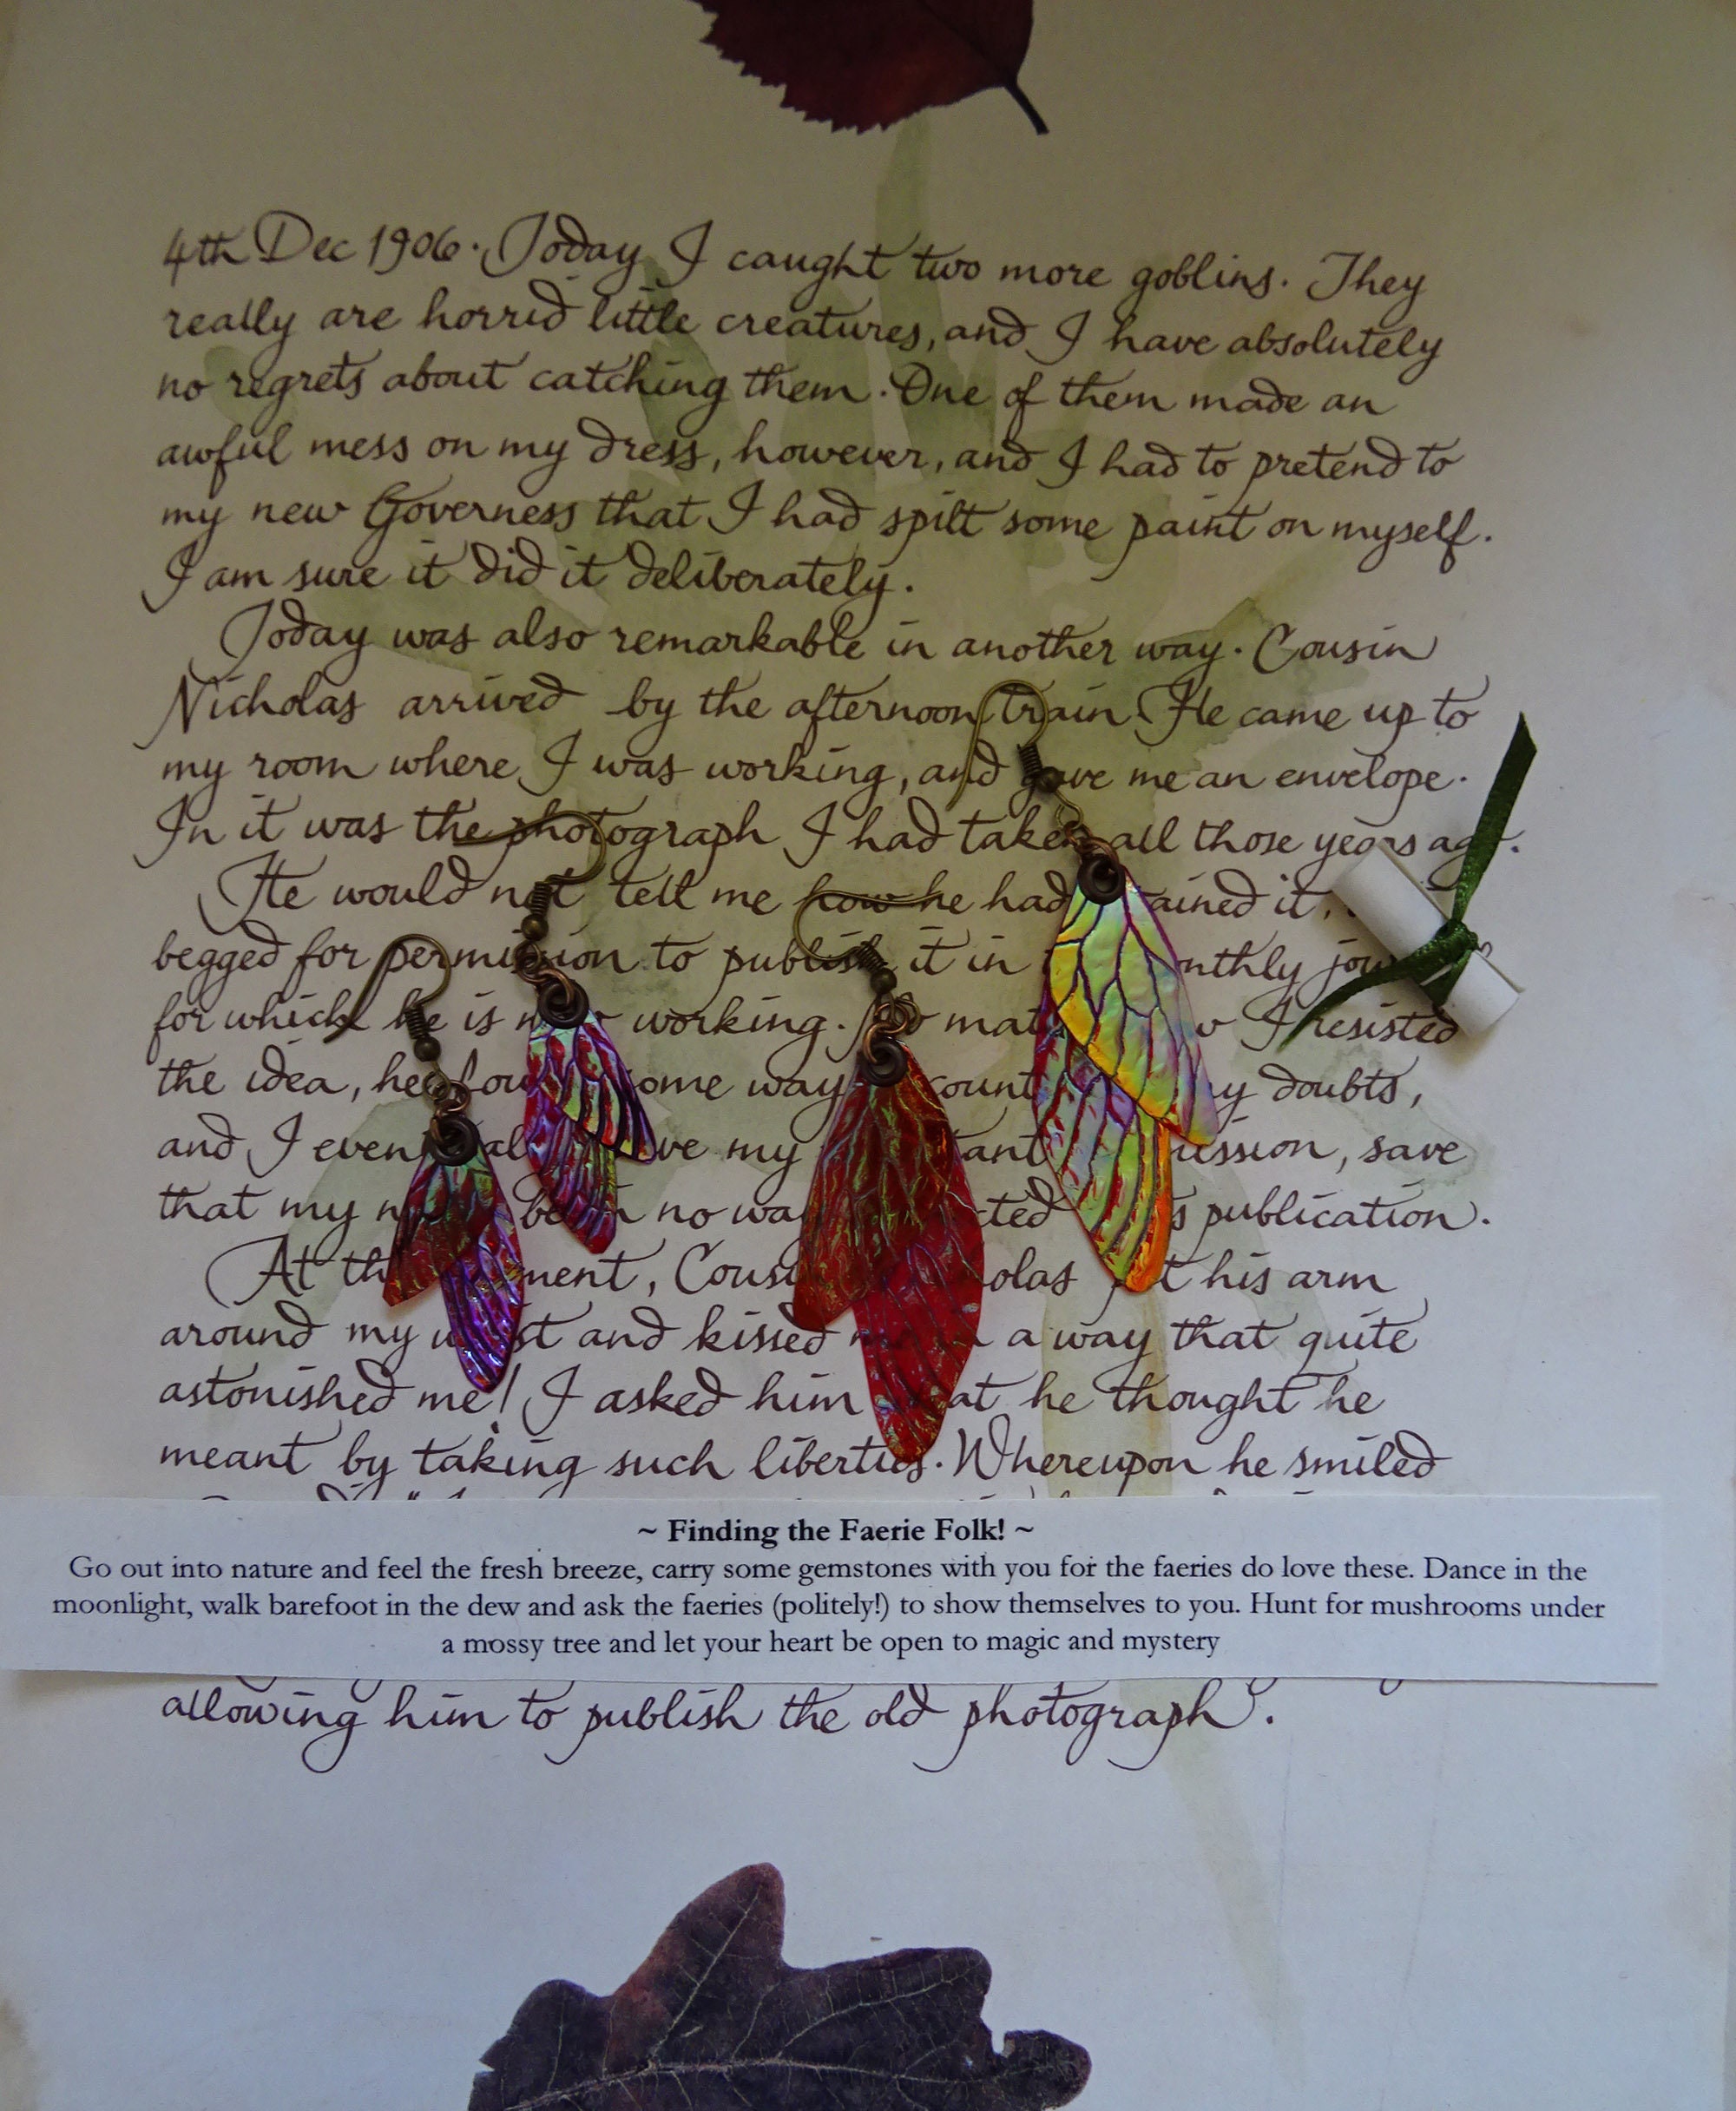 4th Dec 1906. Today I caught two more goblins. They
really are horrid little creatures, and I have absolutely
no regrets about catching them. One of them made an
awful mess on my dress, however, and I had to pretend to
my new Governess that I had spilt some paint on myself.
I am sure it did it deliberately.
Today was also remarkable in another way. Cousin
Nicholas arrived by the afternoon train. He came up to
my room where I was working, and gave me an envelope.
In it was the photograph I had taken all those years ago.
He would not tell me how he had it,
begged for permission to publish it in jou
for which he is now working. No I resisted
the idea, he some way doubts,
and I my save
that my be in no way publication.
At moment, Cousin his arm
around my and kissed me in a way that quite
astonished me! I asked him what he thought he
meant by taking such liberties. Whereupon he smiled
~ Finding the Faerie Folk! ~
Go out into nature and feel the fresh breeze, carry some gemstones with you for the faeries do love these. Dance in the
moonlight, walk barefoot in the dew and ask the faeries (politely!) to show themselves to you. Hunt for mushrooms under
a mossy tree and let your heart be open to magic and mystery
allowing him to publish the old photograph.